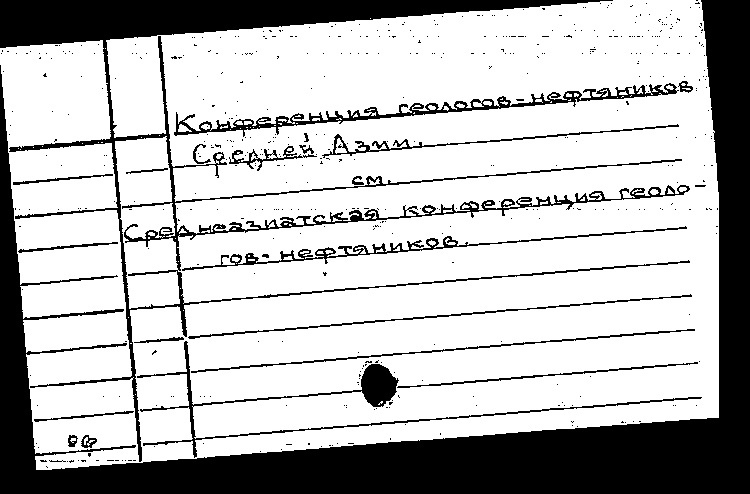 Конференция геологов-нефтяников
Средней Азии.
см.
Среднеазиатская конференция геоло-
гов-нефтяников.